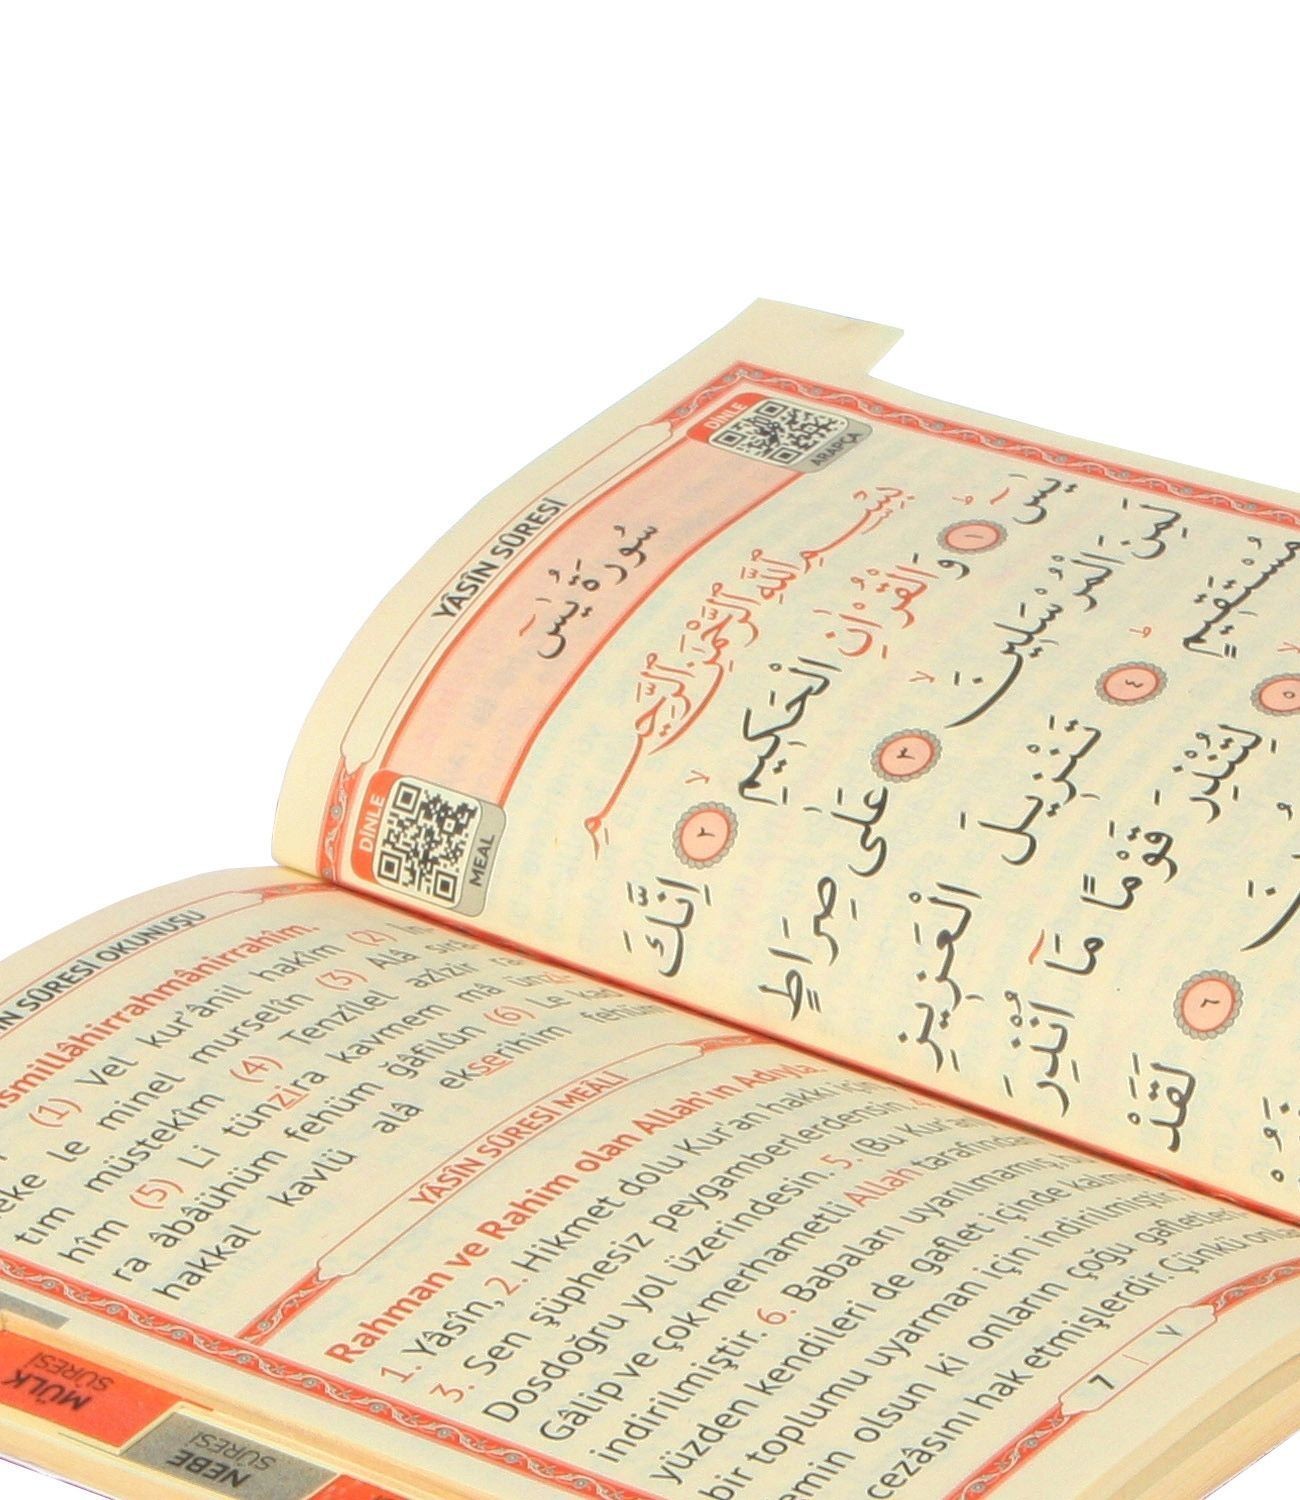 YÂSÎN SÛRESİ
DİNLE
ARAPÇA
سُورَةُ يٰسٓ
DİNLE
MEAL
بِسْمِ اللّٰهِ الرَّحْمٰنِ الرَّحِيمِ
يٰسٓ ۚ ١ وَالْقُرْاٰنِ الْحَكِيمِ ۙ ٢ اِنَّكَ
لَمِنَ الْمُرْسَلِينَ ۙ ٣ عَلٰى صِرَاطٍ
مُسْتَقِيمٍ ۜ ٤ تَنْزِيلَ الْعَزِيزِ
٥ لِتُنْذِرَ قَوْمًا مَٓا اُنْذِرَ
٦ لَقَدْ
SÛRESİ OKUNUŞU
(1) Vel kur'ânil hakîm (2) İn
le minel murselîn (3) Alâ sırâ
tım müstekîm (4) Tenzîlel azîzir
hîm (5) Li tünzira kavmem mâ
ra âbâühüm fehüm ğâfilûn (6) Le
hakkal kavlü alâ ekserihim
YÂSÎN SÛRESİ MEÂLİ
Rahman ve Rahim olan Allah'ın Adıyla.
1. Yâsîn, 2. Hikmet dolu Kur'an hakkı için
3. Sen şüphesiz peygamberlerdensin.
Dosdoğru yol üzerindesin. 5. (Bu Kur'an
Gâlip ve çok merhametli Allah tarafından
indirilmiştir. 6. Babaları uyarılmamış,
yüzden kendileri de gaflet içinde
bir toplumu uyarman için indirilmiştir.
emin olsun ki onların çoğu
cezâsını hak etmişlerdir. Çünkü
7 | ٧
MÜLK
SÛRESİ
NEBE
SÛRESİ